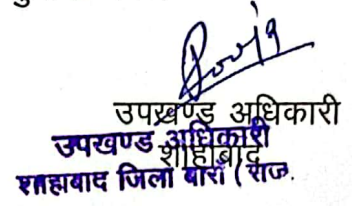 उपखण्ड अधिकारी
शाहाबाद
उपखण्ड अधिकारी
शाहाबाद जिला बारां ( राज.